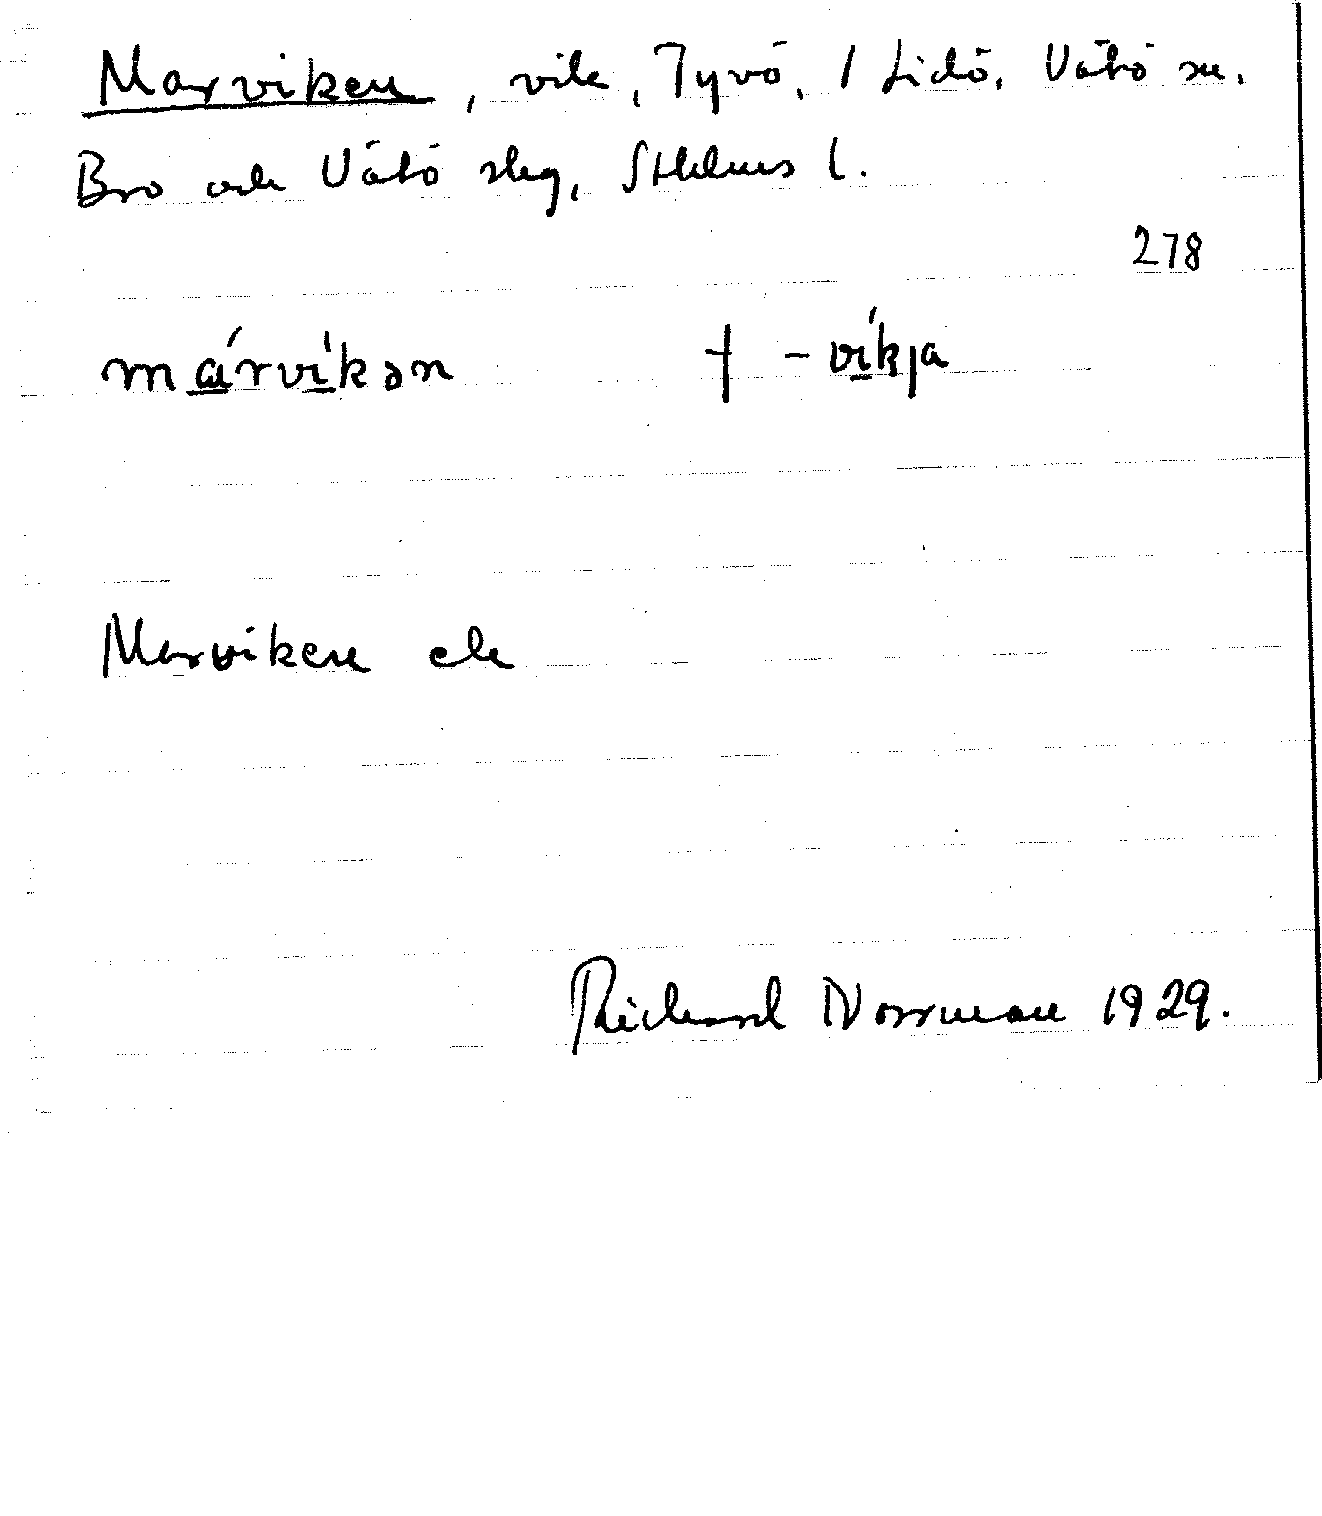 Marviken, vik, Tyvö, 1 Lidö, Vätö sn.
Bro och Vätö slag, Sthlms l.
278
márvíkən † -víkja
Marviken ek
Richard Norrman 1929.